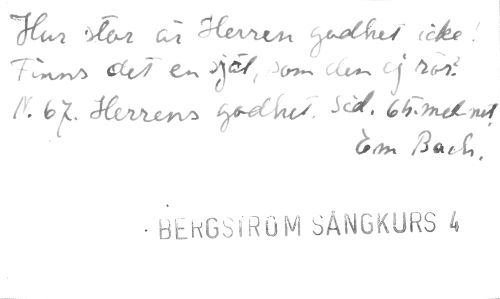 Hur stor är Herren godhet icke!
Finns det en själ, som den ej rör?
N. 67. Herrens godhet. Sid. 65. mel not.
Em Bach.
BERGSTRÖM SÅNGKURS 4